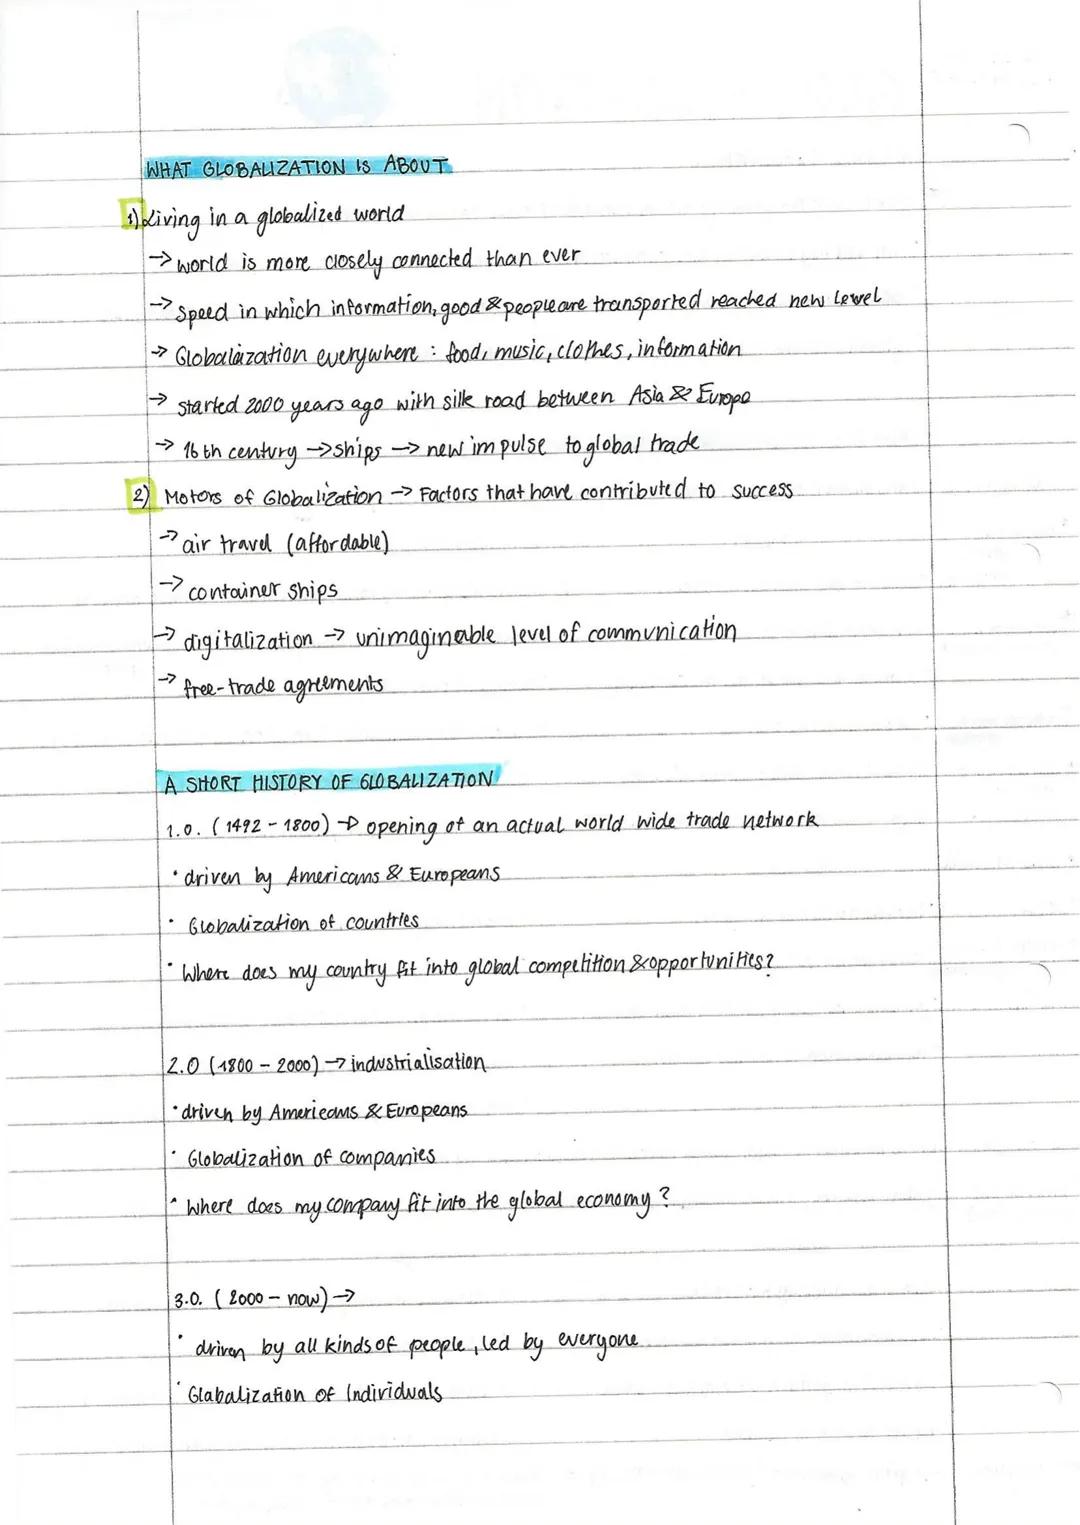 WHAT GLOBALIZATION IS ABOUT
1) Living in a globalized world
→ world is more closely connected than ever
→ Speed in which information, good & people are transported reached new lewel
→ Globalaization everywhere : food, music, clothes, information
→ started 2000 years ago with silk road between Asia & Europe
→ 16th century → ships → new impulse to global trade
2) Motors of Globalization → Factors that have contributed to success
→ air travel (affordable)
→ container ships
→ digitalization → unimaginable level of communication
→ free-trade agreements
A SHORT HISTORY OF GLOBALIZATION
1.0. (1492 - 1800) → opening of an actual world wide trade network
• driven by Americans & Europeans
• Globalization of countries
• Where does my country fit into global competition & opportunities?
2.0 (1800 - 2000) → industrialisation
• driven by Americans & Europeans
• Globalization of companies
• Where does my company fit into the global economy?
3.0. (2000 - now) →
• driven by all kinds of people, led by everyone
• Glabalization of Individuals